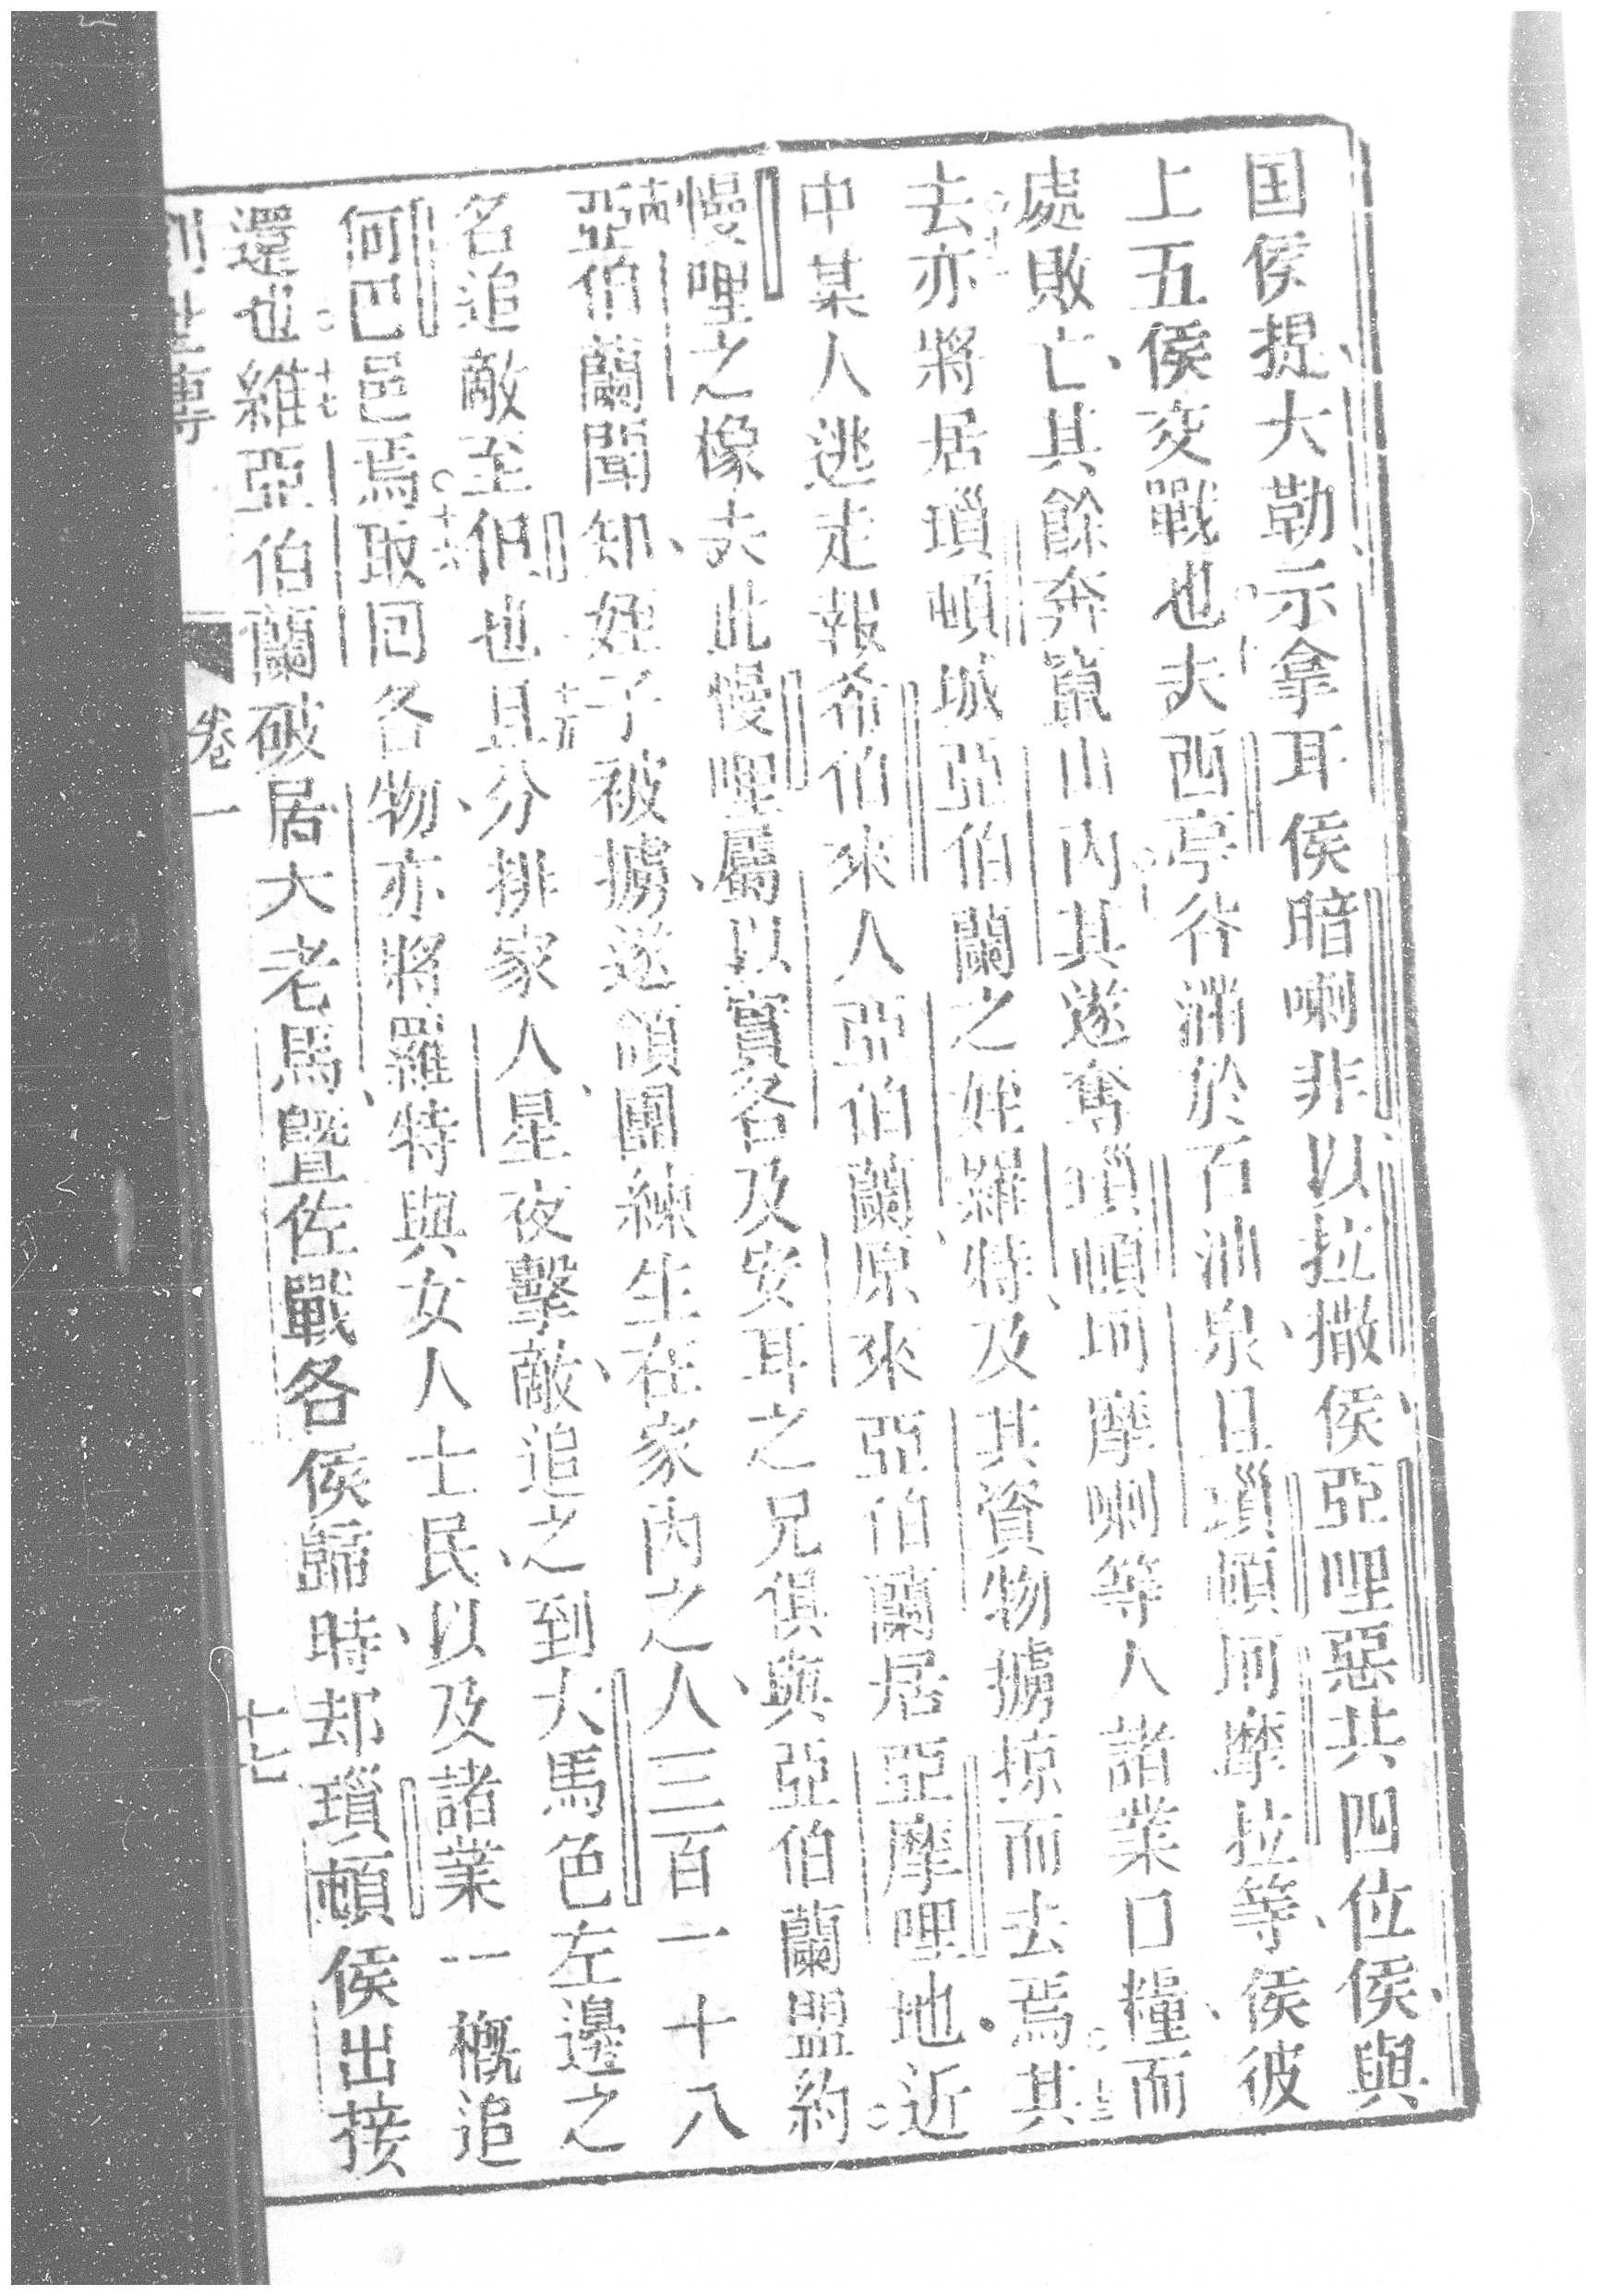 国侯提大勒示拿耳侯暗喇非以拉撒侯亞哩惡共四位侯與
上五侯交戰也○十夫西亭谷滿於石油泉且瑣頓坷摩拉等侯彼
處敗亡其餘奔竄山內○十一其遂奪瑣頓坷摩喇等人諸業口糧而
去○十二亦將居瑣頓城亞伯蘭之姪羅特及其資物擄掠而去焉○十三其
中某人逃走報希伯來人亞伯蘭原來亞伯蘭居亞摩哩地近
慢哩之橡夫此慢哩屬以實各及安耳之兄俱與亞伯蘭盟約○十四
亞伯蘭聞知姪子被擄遂領團練生在家內之人三百一十八
名追敵至但也○十五且分排家人星夜擊敵追之到大馬色左邊之
何巴邑焉○十六取回各物亦將羅特與女人士民以及諸業一概追
還也○十七維亞伯蘭破居大老馬暨佐戰各侯歸時却瑣頓侯出接
創世傳 卷一 十七